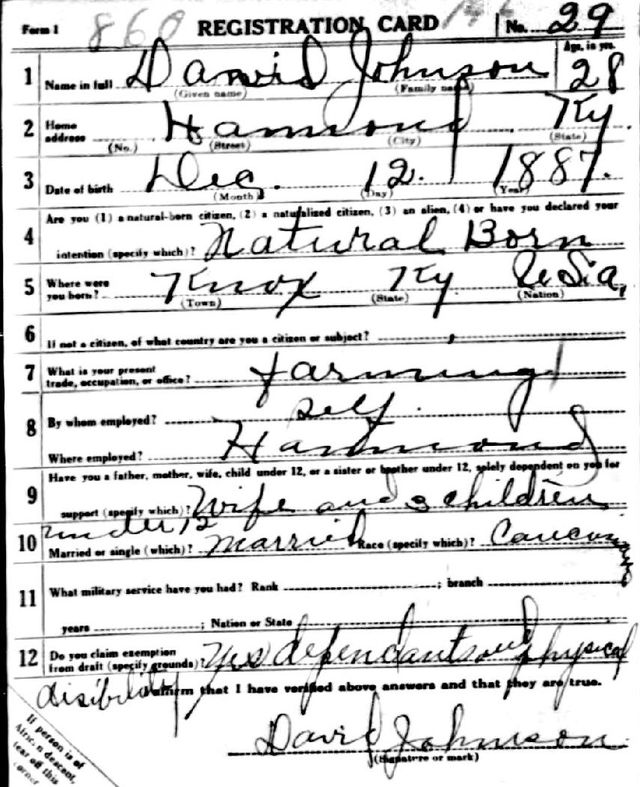 Form 1 860 REGISTRATION CARD 146 No. 29
1 Name in full David Johnson Age, in yrs. 28
(Given name) (Family name)
2 Home address Hammond Ky
(No.) (Street) (City) (State)
3 Date of birth Dec. 12. 1887.
(Month) (Day) (Year)
4 Are you (1) a natural-born citizen, (2) a naturalized citizen, (3) an alien, (4) or have you declared your
intention (specify which)? Natural Born
5 Where were you born? Knox Ky
(Town) (State) (Nation)
6 If not a citizen, of what country are you a citizen or subject?
7 What is your present trade, occupation, or office? farming
8 By whom employed? self
Where employed? Hammond
9 Have you a father, mother, wife, child under 12, or a sister or brother under 12, solely dependent on you for
support (specify which)? Wife and 3 children
under 12
10 Married or single (which)? Married Race (specify which)?
11 What military service have you had? Rank ; branch
years ; Nation or State
12 Do you claim exemption from draft (specify grounds)? Yes dependants and physical
disibility
I affirm that I have verified above answers and that they are true.
David Johnson
(Signature or mark)
If person is of
African descent,
tear off this
corner